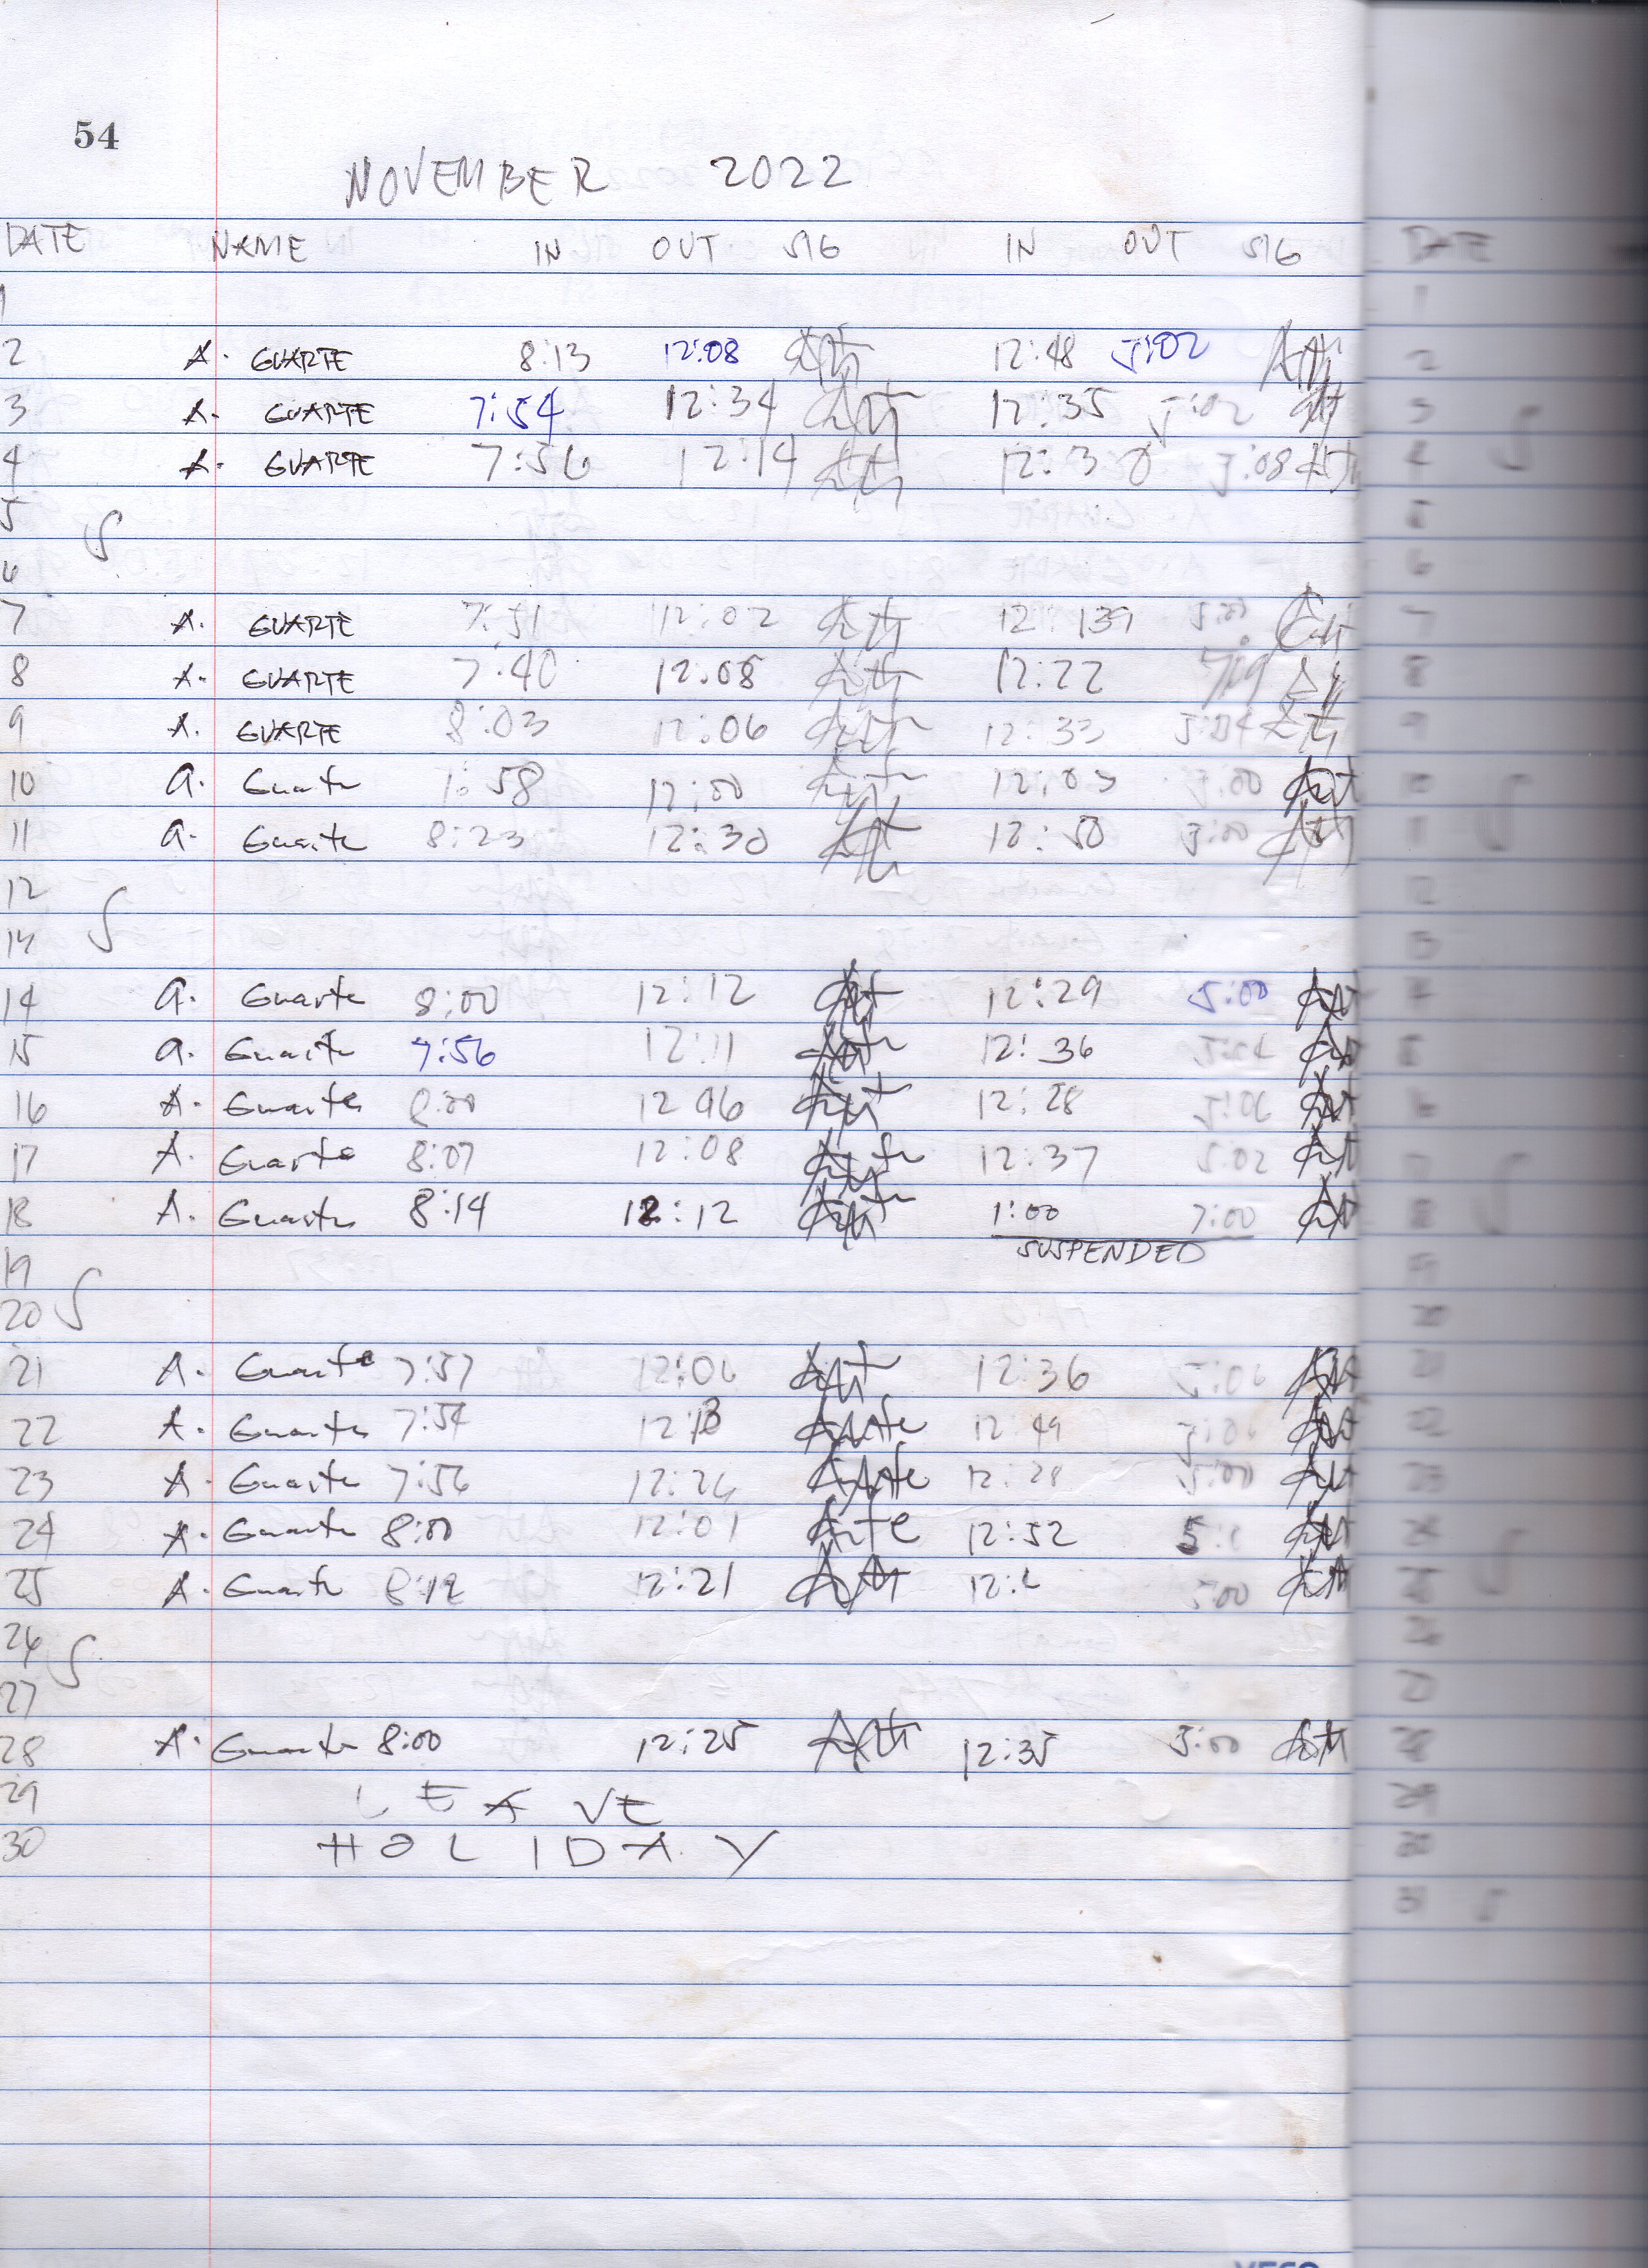 54
NOVEMBER 2022
DATE NAME IN OUT SIG IN OUT SIG
1
2 A. GUARTE 8:13 12:08 12:48 5:02
3 A. GUARTE 7:54 12:34 12:35 5:02
4 A. GUARTE 7:56 12:14 12:30 5:08
5 S
6
7 A. GUARTE 7:51 12:02 12:139
8 A. GUARTE 7:40 12:08 12:22
9 A. GUARTE 8:03 12:06 12:33 5:04
10 a. Guarte 7:58 12:00 12:03 5:00
11 a. Guarte 8:23 12:30 12:50 5:00
12 S
14 a. Guarte 8:00 12:12 12:29 5:00
15 a. Guarte 7:56 12:11 12:36 5:04
16 A. Guarte 8:00 12 12:28 5:06
17 A. Guarte 8:07 12:08 12:37 5:02
18 A. Guarte 8:14 12:12 1:00 7:00
SUSPENDED
19
20 S
21 A. Guarte 7:57 12:06 12:36 5:06
22 A. Guarte 7:54 12:13 12:49 5:06
23 A. Guarte 7:56 12:26 12:28 5:00
24 A. Guarte 8:00 12:01 12:52
25 A. Guarte 8:12 12:21 5:00
26 S
27
28 A. Guarte 8:00 12:25 12:35 5:00
29 LEAVE
30 HOLIDAY